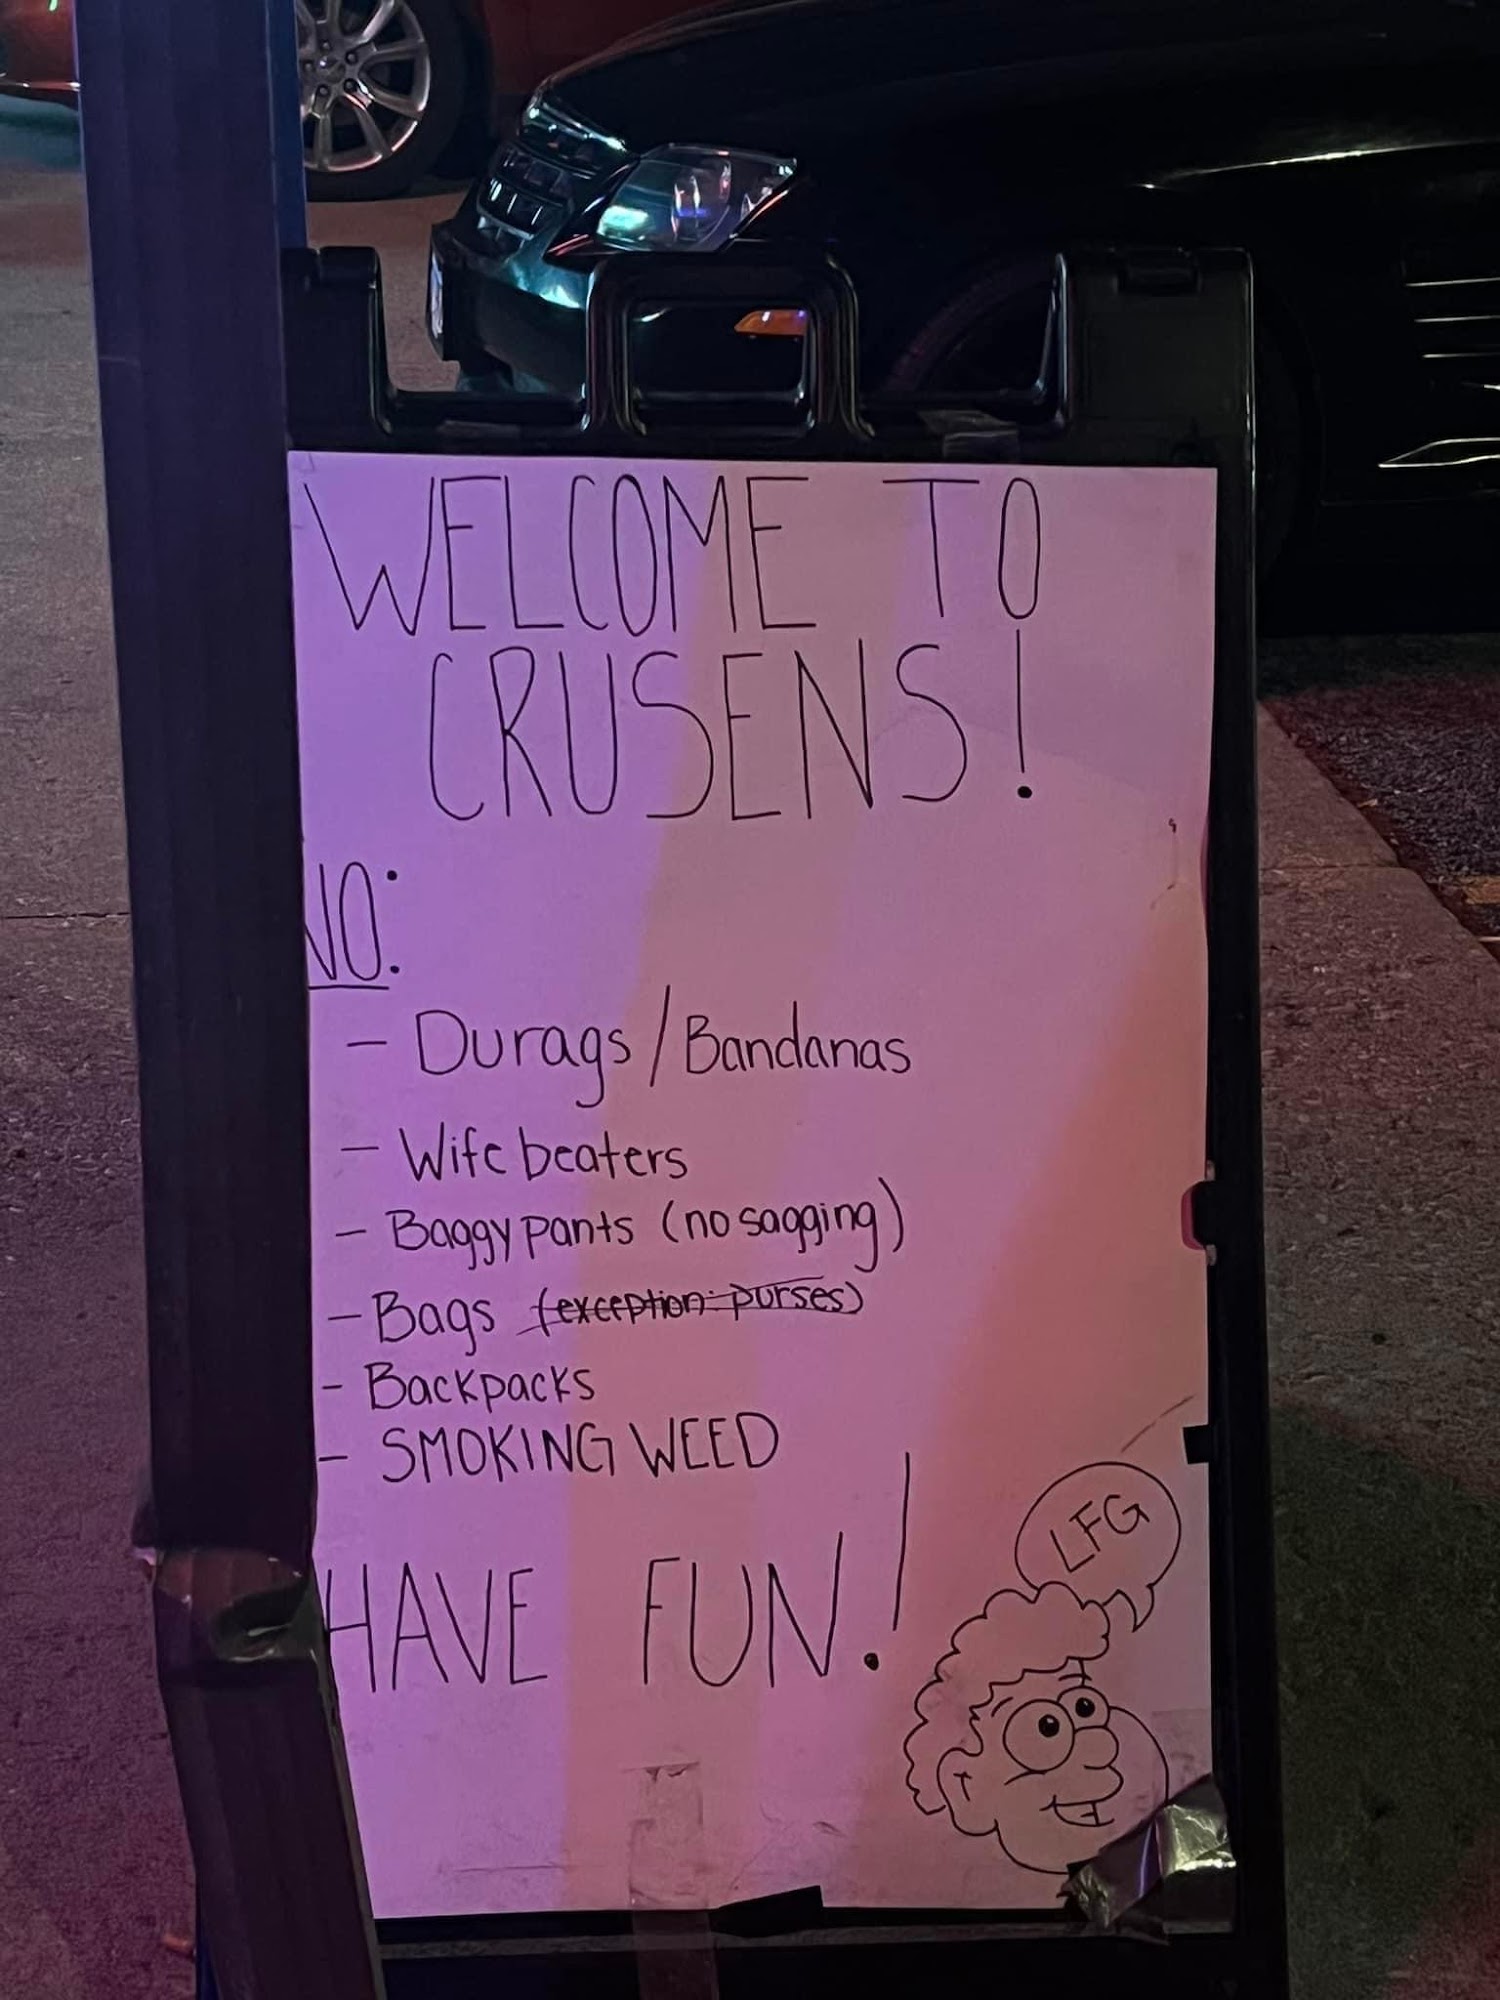 WELCOME TO
CRUSENS!
NO:
- Durags/Bandanas
- Wife beaters
- Baggy pants (no sagging)
- Bags (exception: purses)
- Backpacks
- SMOKING WEED
HAVE FUN!!
LFG